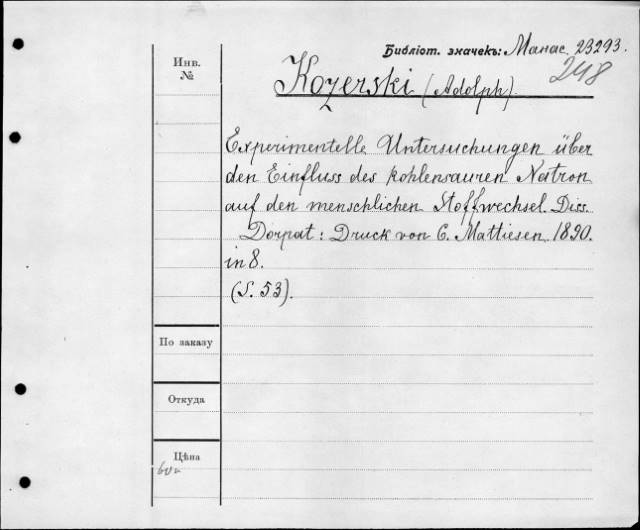 Библіот. значекъ: Манас. 23293.
248
Инв.
№
Kozerski (Adolph).
Experimentelle Untersuchungen über
den Einfluss des kohlensauren Natron
auf den menschlichen Stoffwechsel. Diss.
Dorpat: Druck von C. Mattiesen. 1890.
in 8.
(S. 53).
По заказу
Откуда
Цѣна